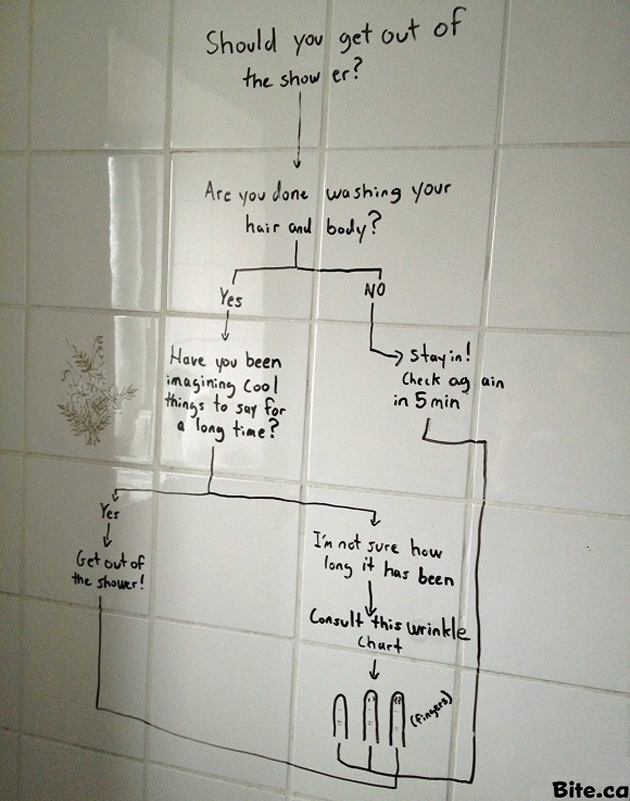 Should you get out of
the shower?
Are you done washing your
hair and body?
Yes
NO
Have you been
imagining cool
things to say for
a long time?
Stay in!
Check again
in 5 min
Yes
Get out of
the shower!
I'm not sure how
long it has been
Consult this wrinkle
chart
(fingers)
Bite.ca